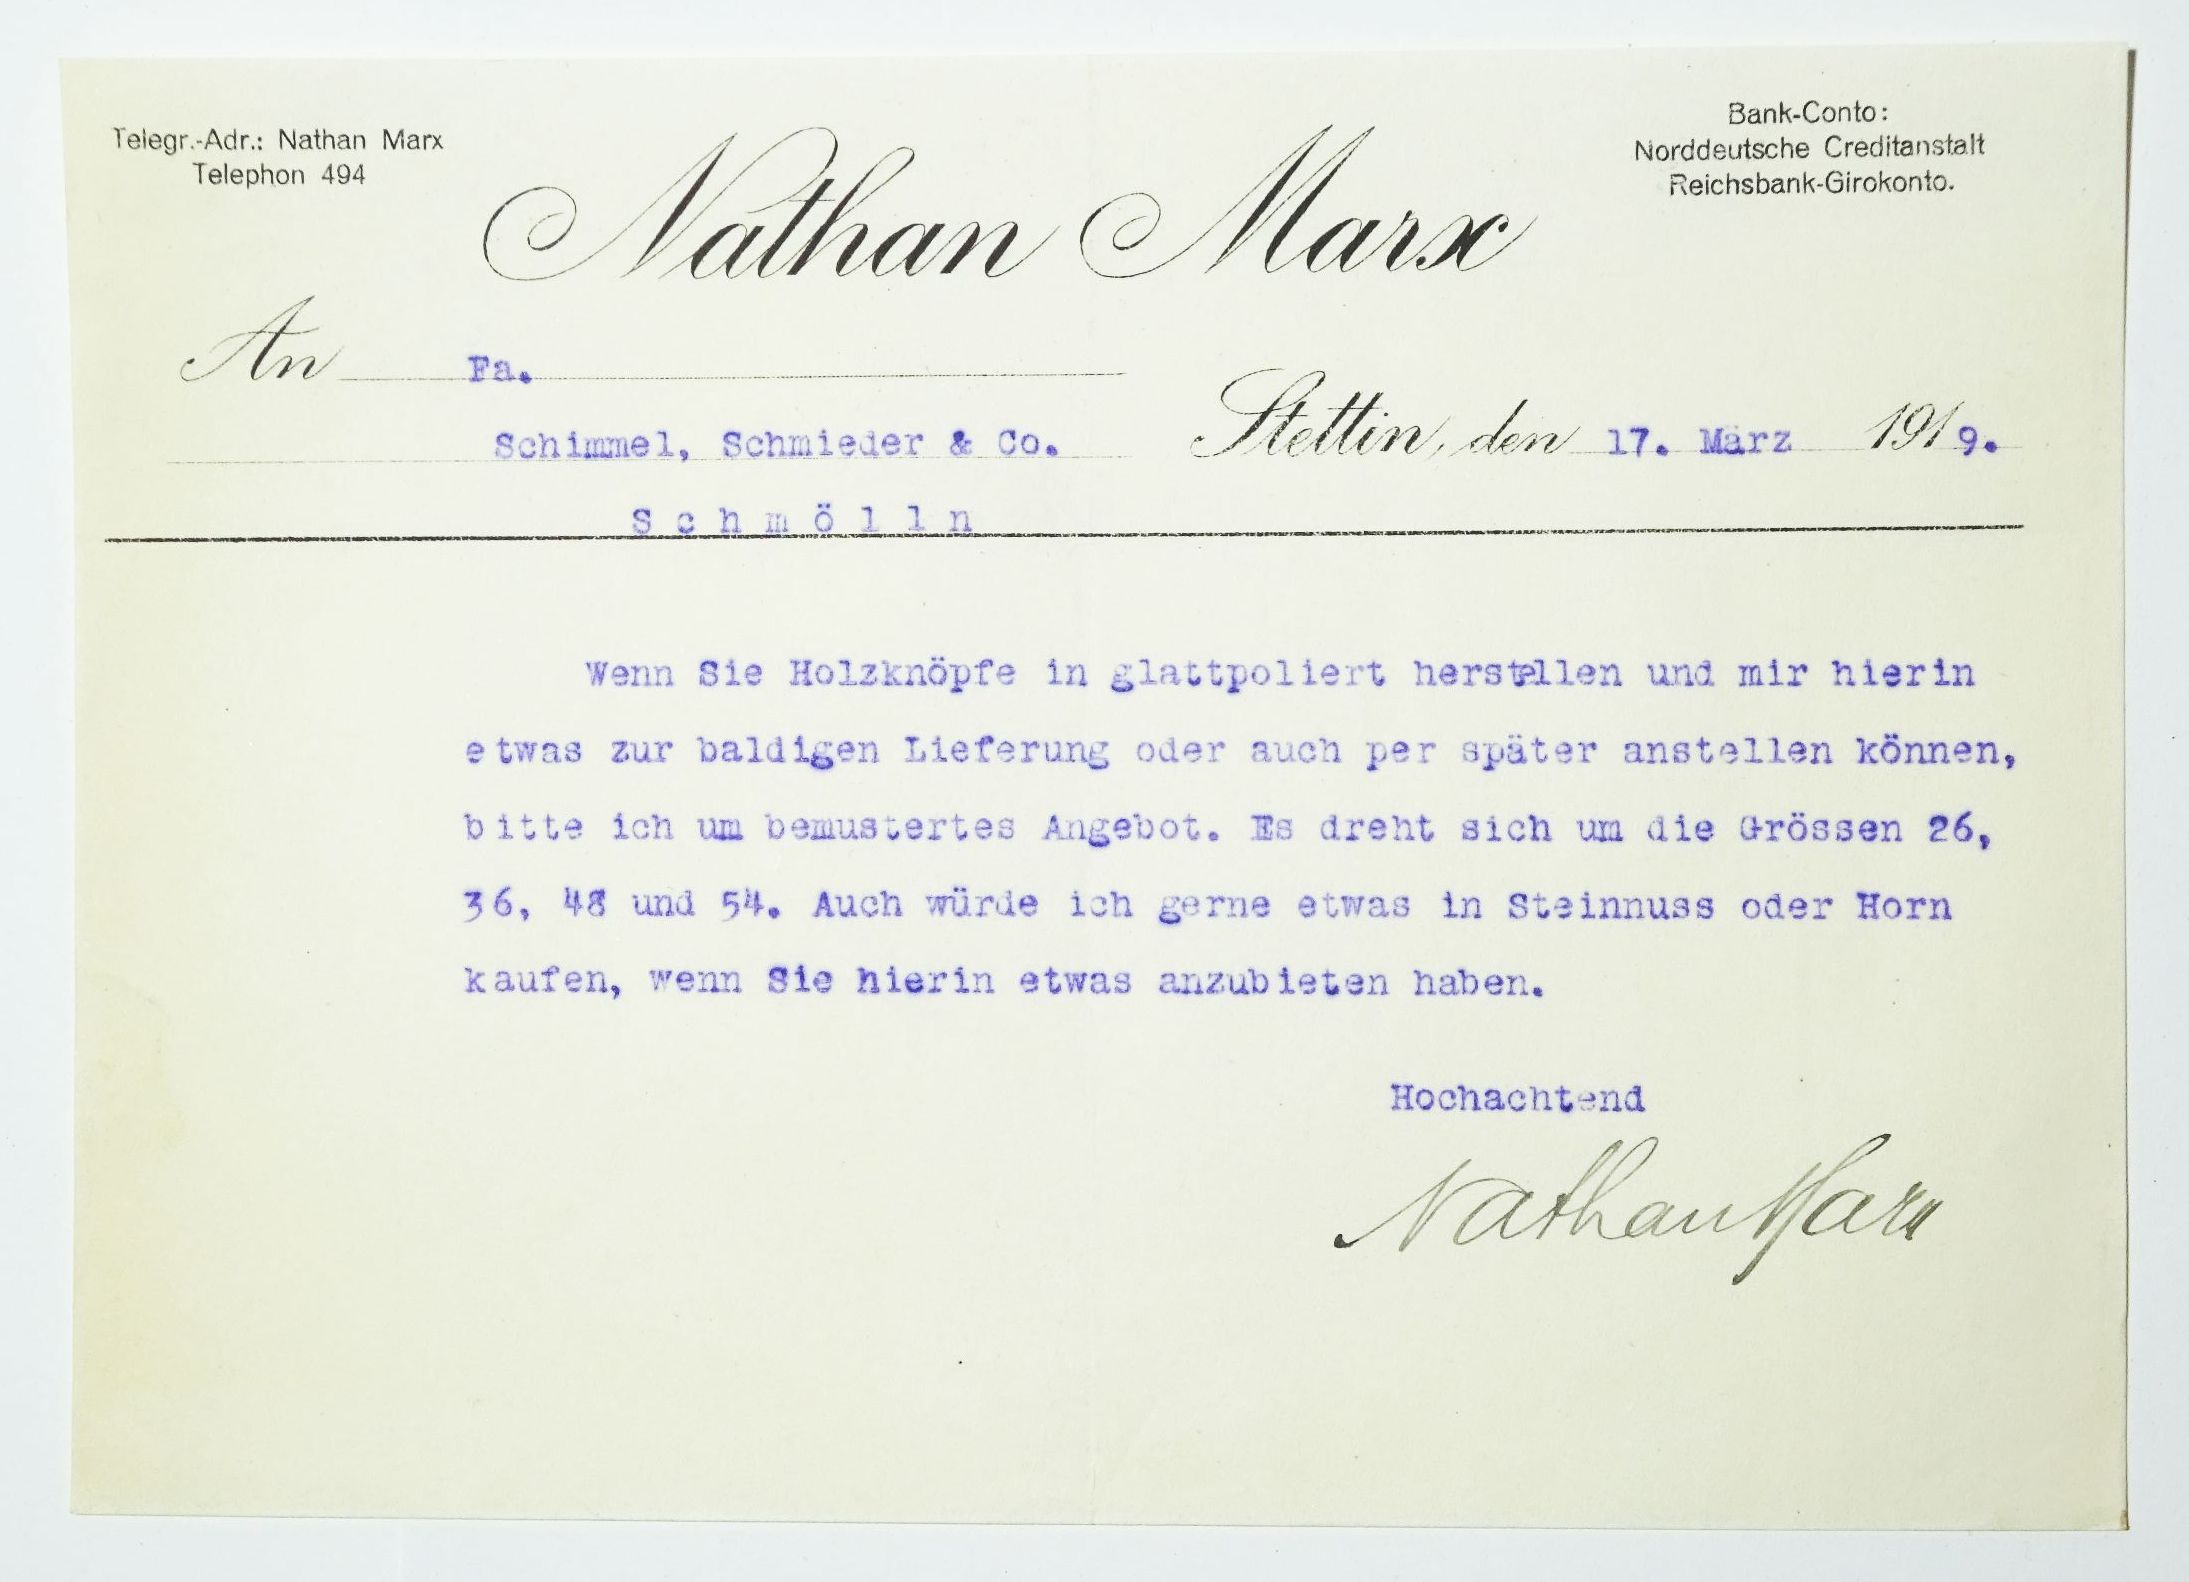 Telegr.-Adr.: Nathan Marx
Telephon 494
Bank-Conto:
Norddeutsche Creditanstalt
Reichsbank-Girokonto.
Nathan Marx
An Fa.
Schimmel, Schmieder & Co.
Schmölln
Stettin, den 17. März 1919.
Wenn Sie Holzknöpfe in glattpoliert herstellen und mir hierin
etwas zur baldigen Lieferung oder auch per später anstellen können,
bitte ich um bemustertes Angebot. Es dreht sich um die Grössen 26,
36, 48 und 54. Auch würde ich gerne etwas in Steinnuss oder Horn
kaufen, wenn Sie hierin etwas anzubieten haben.
Hochachtend
Nathan Marx